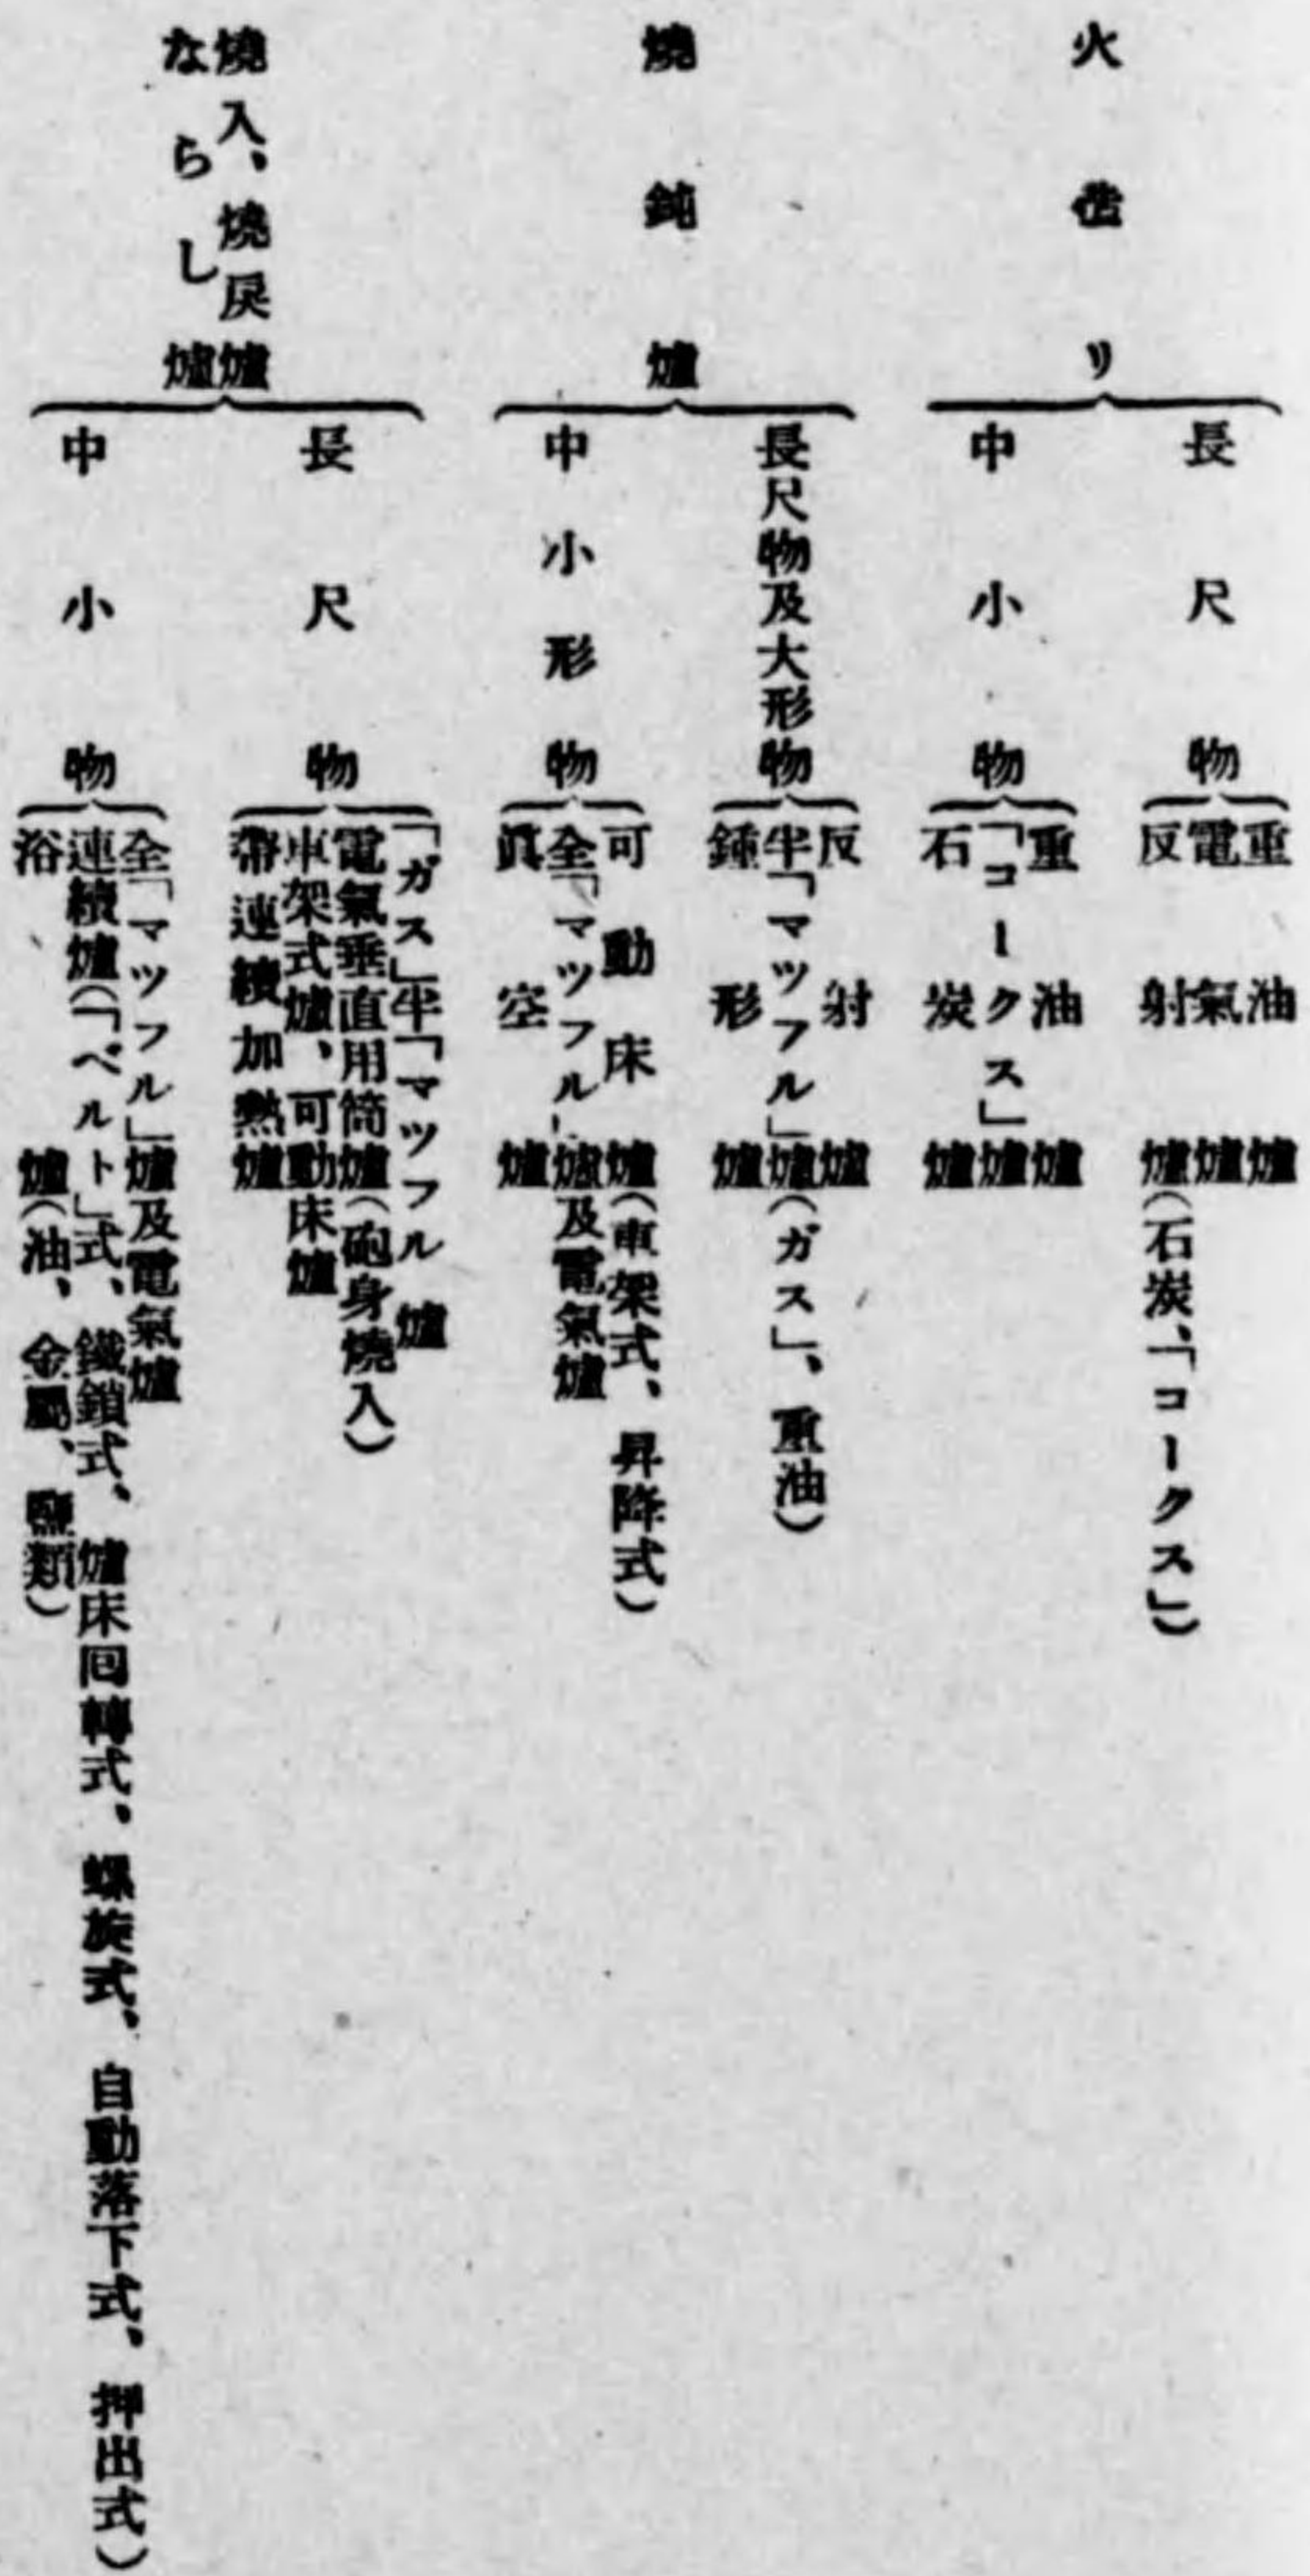 火造リ
長尺物
重油爐
電氣爐
反射爐(石炭、「コークス」)
中小物
重油爐
「コークス」爐
石炭爐
燒鈍爐
長尺物及大形物
反射爐
半「マツフル」爐(ガス」、重油)
鍾形爐
中小形物
可動床爐(車架式、昇降式)
全「マツフル」爐及電氣爐
眞空爐
燒入、燒戻爐
ならし爐
長尺物
「ガス」半「マツフル爐
電氣垂直用筒爐(砲身燒入)
車架式爐、可動床爐
帶連續加熱爐
中小物
全「マツフル」爐及電氣爐
連續爐(「ベルト」式、鐵鎖式、爐床回轉式、螺旋式、自動落下式、押出式)
浴爐(油、金屬、鹽類)